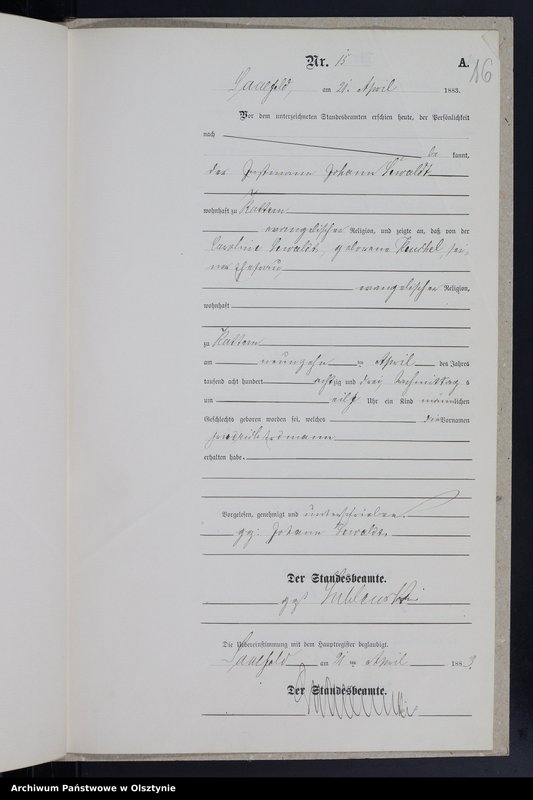 Nr. 15
A.
16
Saalfeld, am 21. April 1883.
Vor dem unterzeichneten Standesbeamten erschien heute, der Persönlichkeit
nach be kannt,
der Johann Sewaldt
wohnhaft zu Kuttern
evangelischer Religion, und zeigte an, daß von der
Caroline Sewaldt, geborene Henschel, sei-
ner Ehefrau,
evangelischer Religion,
wohnhaft
zu Kuttern
am neunzehn ten April des Jahres
tausend acht hundert achtzig und drei Nachmittag s
um eilf Uhr ein Kind männlichen
Geschlechts geboren worden sei, welches die Vornamen
Friedrich Hermann
erhalten habe.
Vorgelesen, genehmigt und unterschrieben.
gz: Johann Sewaldt.
Der Standesbeamte.
gz:
Die Uebereinstimmung mit dem Hauptregister beglaubigt.
Saalfeld am 21 ten April 1883.
Der Standesbeamte.
Archiwum Państwowe w Olsztynie